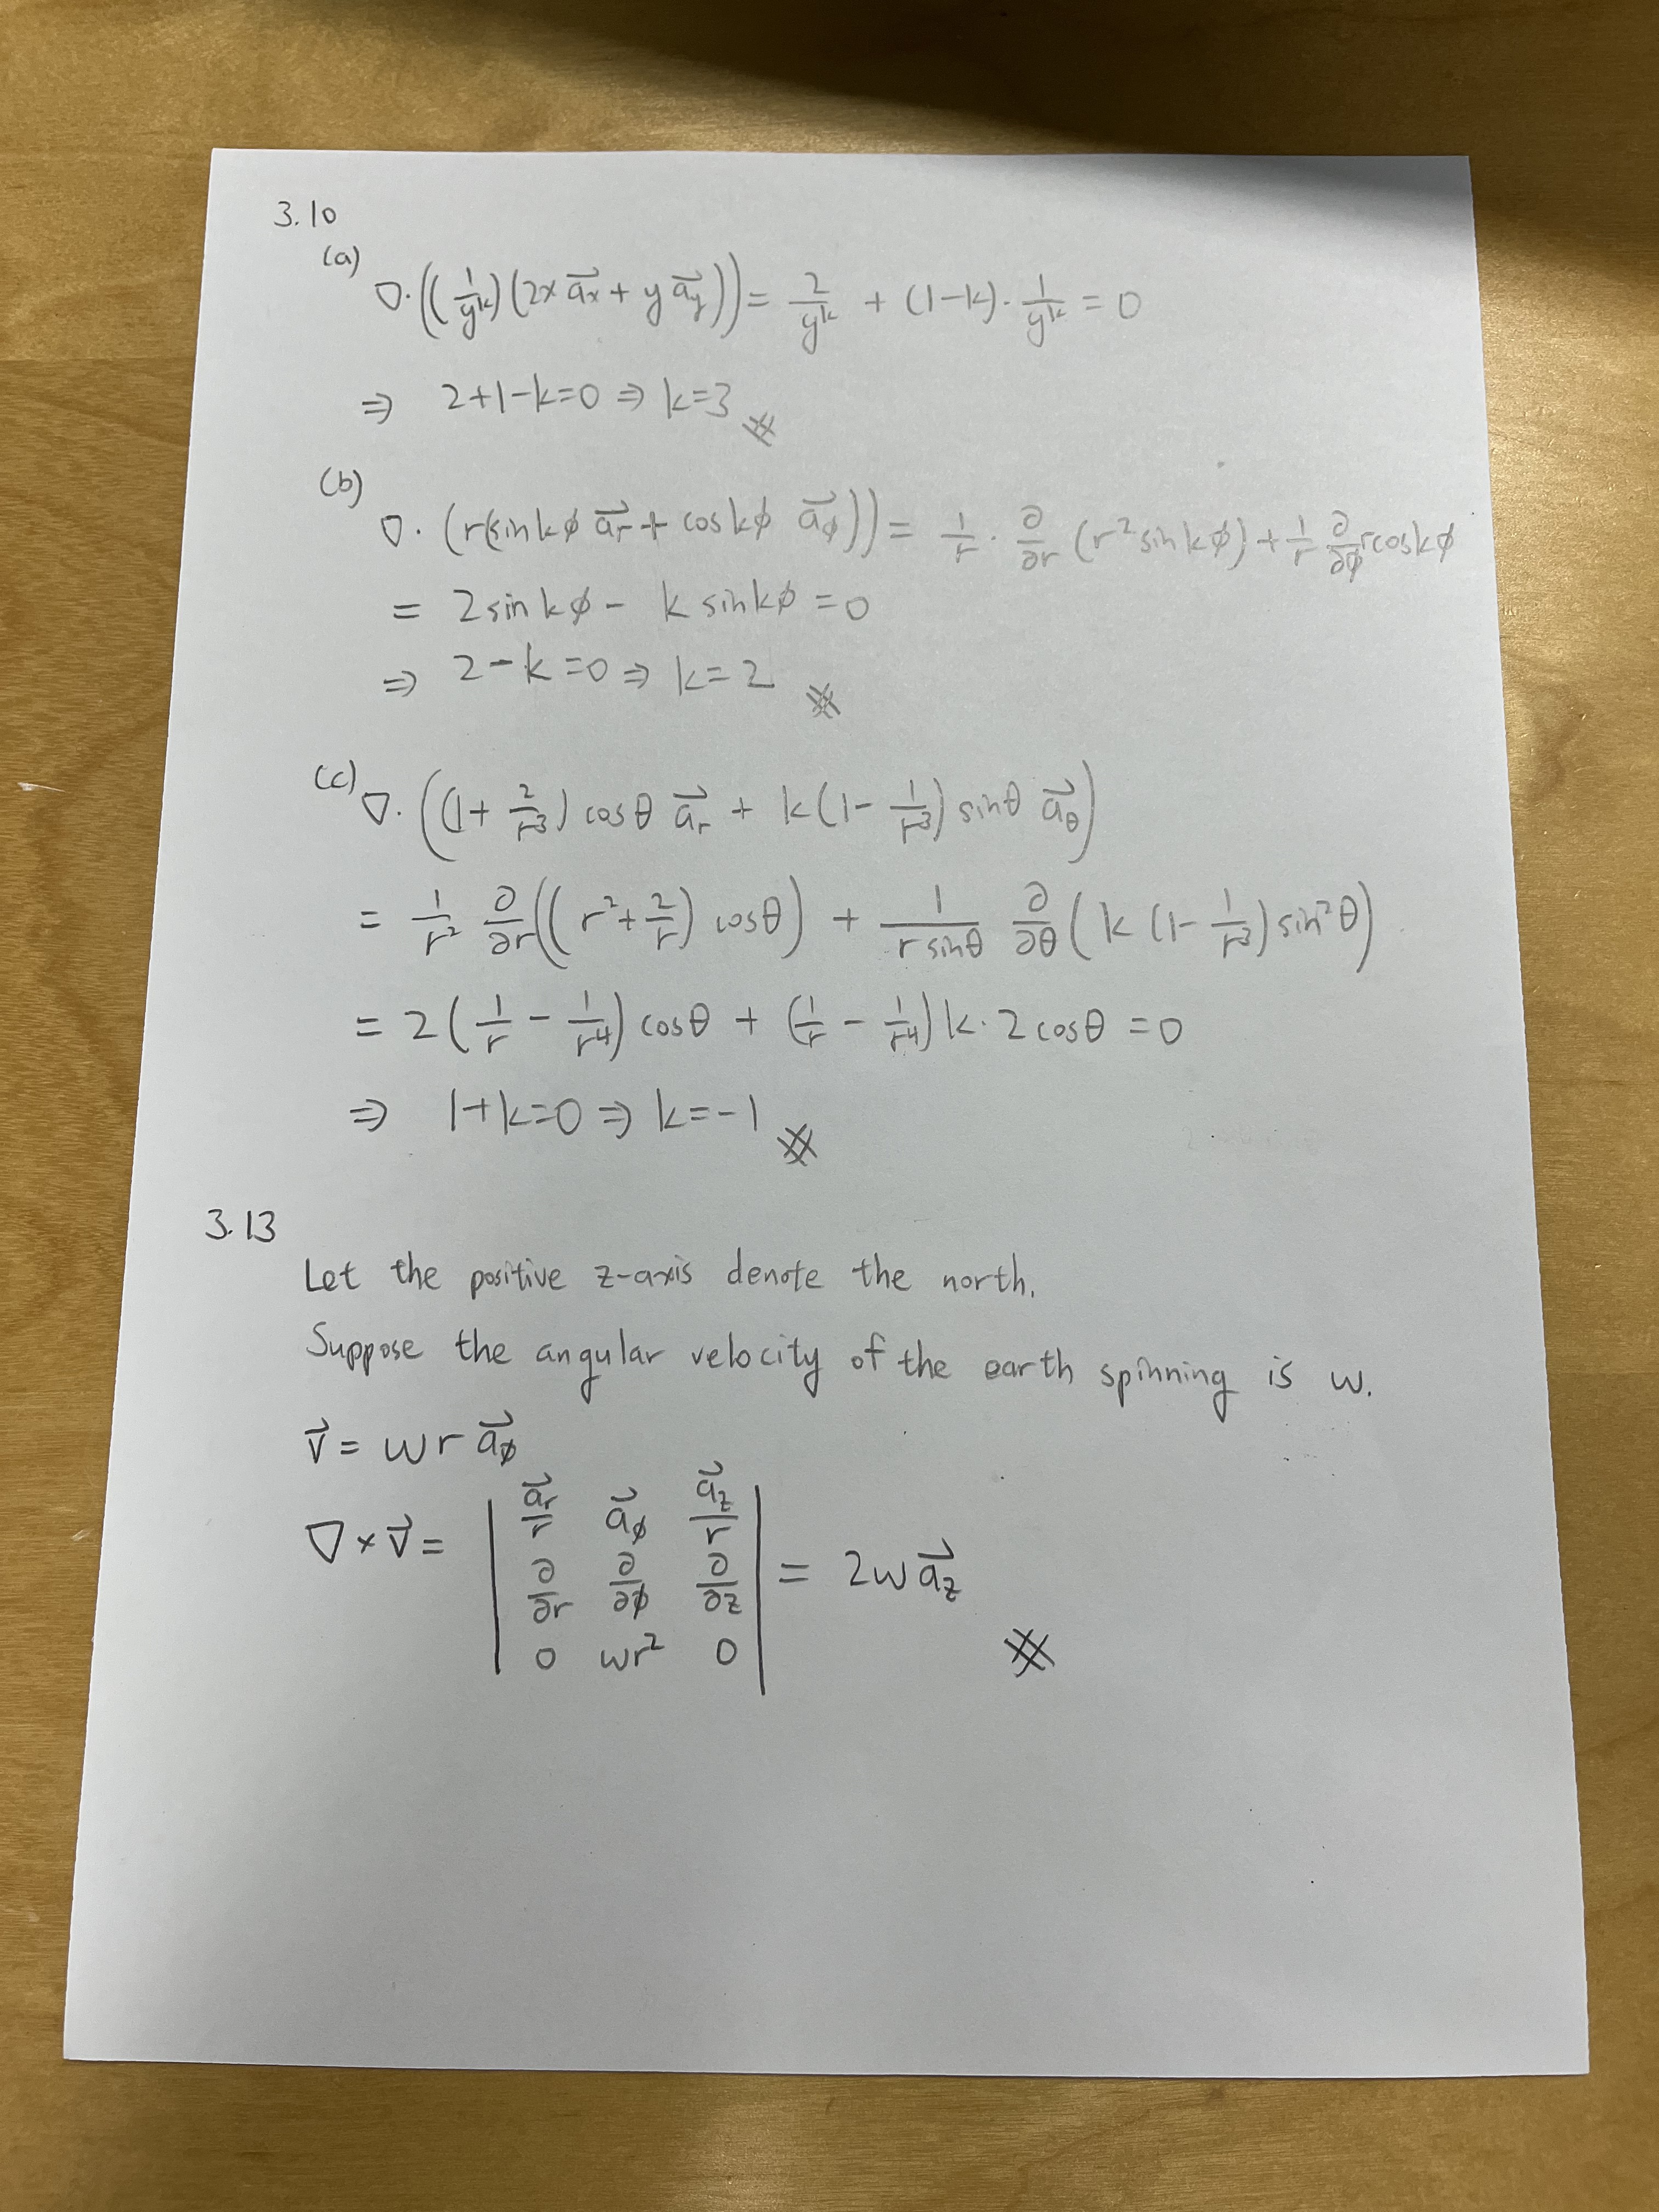 3.10
(a) ∇·((1/y^k)(2x a⃗x + y a⃗y)) = 2/y^k + (1-k)·1/y^k = 0
⇒ 2+1-k=0 ⇒ k=3 ※
(b) ∇·(r(sin kϕ a⃗r + cos kϕ a⃗ϕ)) = 1/r · ∂/∂r (r² sin kϕ) + 1/r ∂/∂ϕ r cos kϕ
= 2 sin kϕ - k sin kϕ = 0
⇒ 2-k=0 ⇒ k=2 ※
(c) ∇·((1+2/r³) cosθ a⃗r + k(1-1/r³) sinθ a⃗θ)
= 1/r² ∂/∂r((r²+2/r) cosθ) + 1/(r sinθ) ∂/∂θ(k(1-1/r³) sin²θ)
= 2(1/r - 1/r⁴) cosθ + (1/r - 1/r⁴) k·2 cosθ = 0
⇒ 1+k=0 ⇒ k=-1 ※
3.13
Let the positive z-axis denote the north.
Suppose the angular velocity of the earth spinning is w.
v⃗ = w r a⃗ϕ
∇×v⃗ = | a⃗r/r a⃗ϕ a⃗z/r |
| ∂/∂r ∂/∂ϕ ∂/∂z |
| 0 wr² 0 | = 2w a⃗z ※